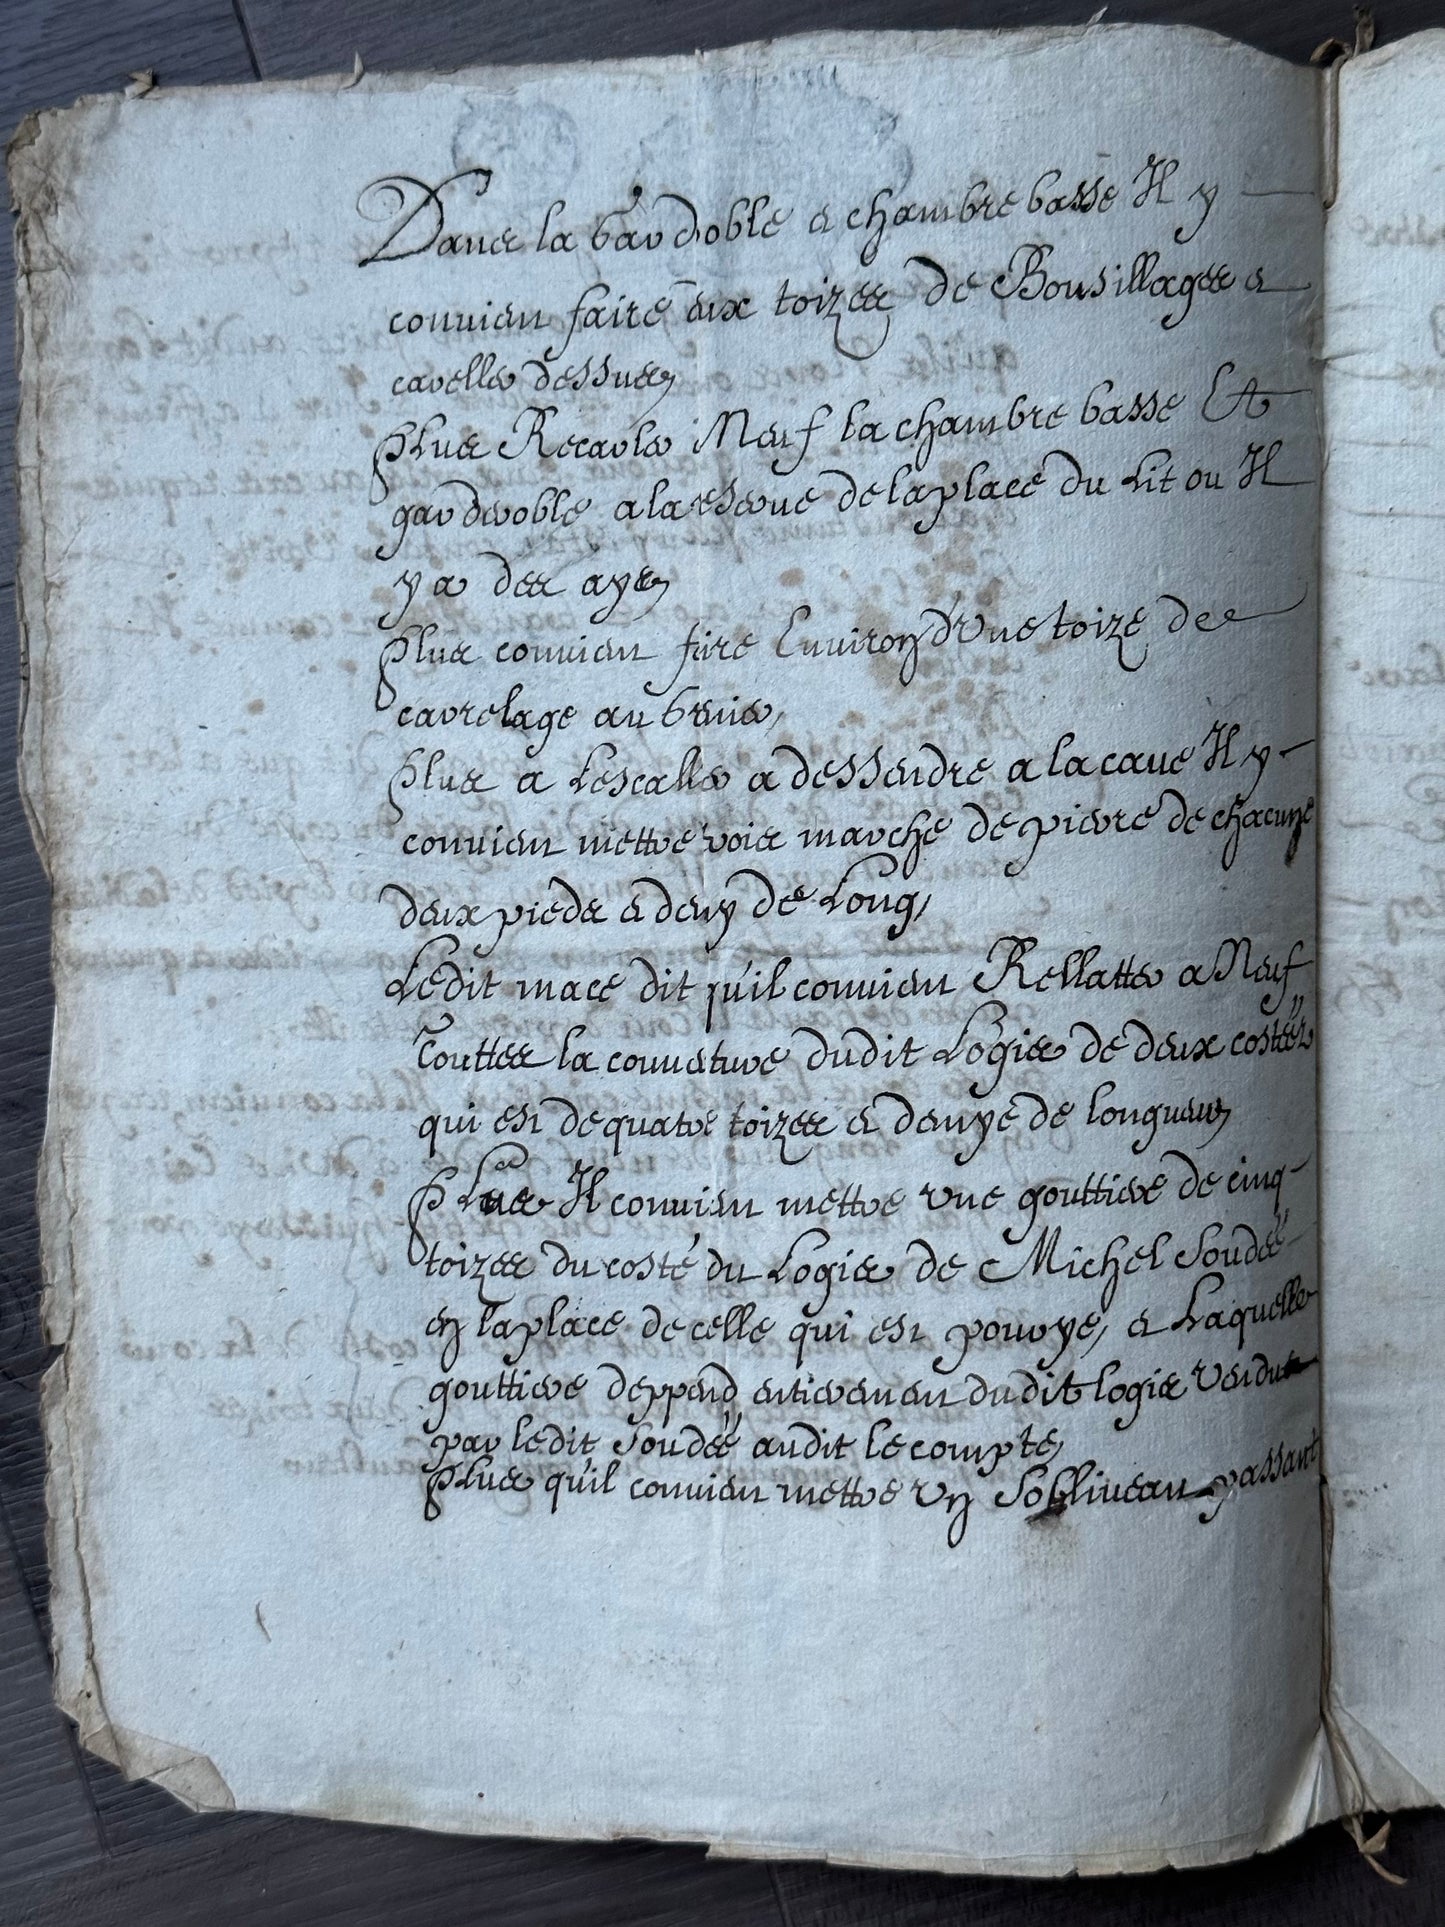 Dans la gardroble & chambre basse Il y
convient faire deux toizes de Bousillages &
careller dessus,
Plus Recarler Neuf la chambre basse Et
garderoble a la reserve de la place du Lit ou Il
y a des ays,
Plus convient faire Environ d'une toize de
carrelage au grenier,
Plus a Lescallier a dessendre a la cave Il y
convient mettre trois marche de pierre de chacune
deux pieds & demy de Long,
Ledit mace dit qu'il convient Rellatter a Neuf
Touttes la couverture dudit Logis de deux costéz
qui est de quatre toizes & demye de longueur,
Plus Il convient mettre une gouttiere de cinq
toizes du costé du Logis de Michel Soudée
en la place de celle qui est pourye, & Laquelle
gouttiere deppend entierement dudit logis vendu
par ledit Soudéé audit le compte,
Plus qu'il convient mettre un Solliveau passant